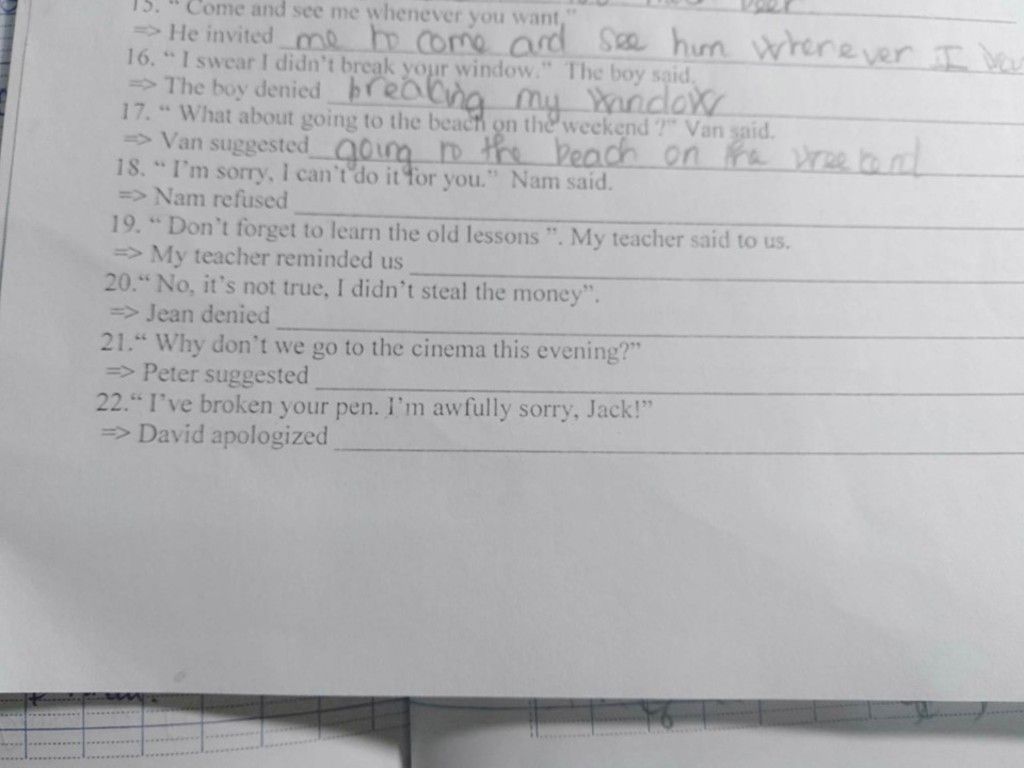 15. " Come and see me whenever you want."
=> He invited me to come and see him whenever I
16. " I swear I didn't break your window." The boy said.
=> The boy denied breaking my window
17. " What about going to the beach on the weekend ?" Van said.
=> Van suggested going to the beach on the weekend
18. " I'm sorry, I can't do it for you." Nam said.
=> Nam refused
19. " Don't forget to learn the old lessons ". My teacher said to us.
=> My teacher reminded us
20.“ No, it's not true, I didn't steal the money”.
=> Jean denied
21.“ Why don't we go to the cinema this evening?”
=> Peter suggested
22.“ I've broken your pen. I'm awfully sorry, Jack!”
=> David apologized